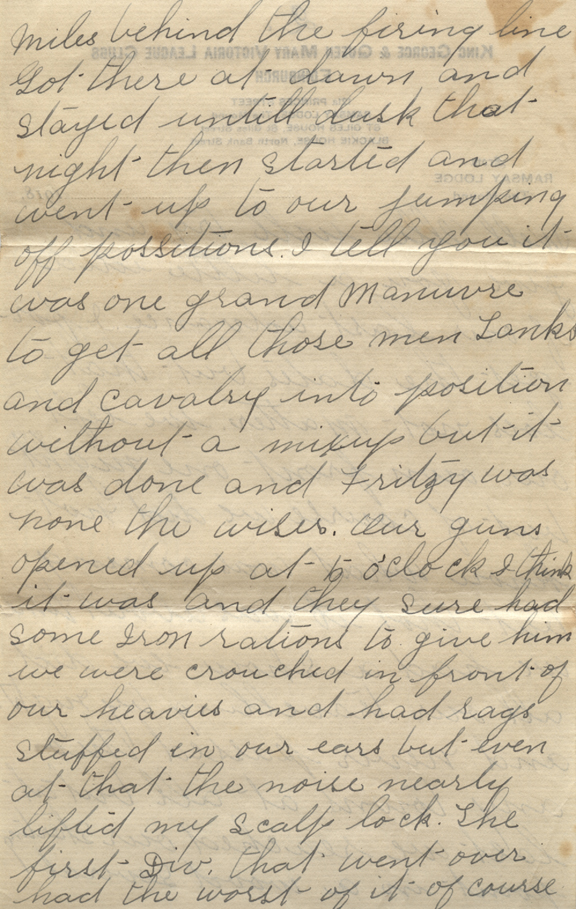 miles behind the firing line
Got there at Dawn and
stayed untill dusk that
night then started and
went up to our jumping
off possitions. I tell you it
was one grand Manuvre
to get all those men Tanks
and cavalry into position
without a mixup but it
was done and Fritzy was
none the wiser. Our guns
opened up at 5 o'clock I think
it was and they sure had
some Iron rations to give him
we were crouched in front of
our heavies and had rags
stuffed in our ears but even
at that the noise nearly
lifted my scalp lock. The
first Div. that went over
had the worst of it of course
KING GEORGE & QUEEN MARY VICTORIA LEAGUE CLUBS
EDINBURGH
RAMSAY LODGE